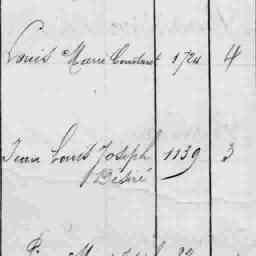 Louis Marie Constant 1724 4
Jean Louis Joseph 1139 3
Désiré